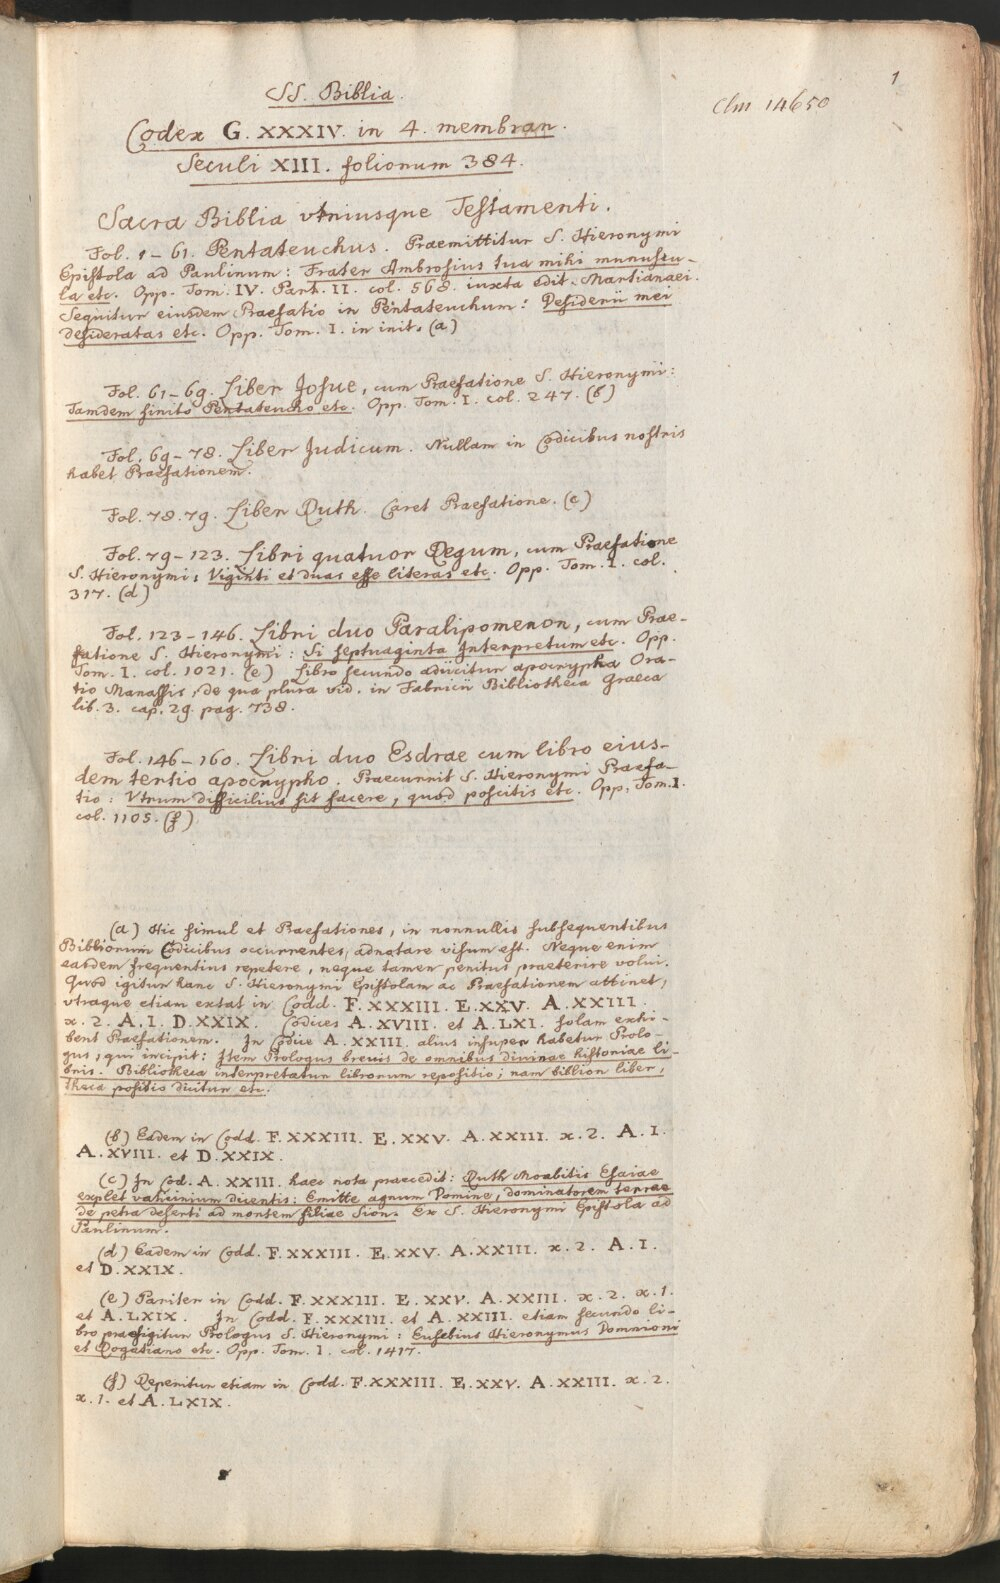 1
SS. Biblia.
Clm 14650
Codex G. XXXIV. in 4. membran.
Seculi XIII. foliorum 384.
Sacra Biblia vtriusque Testamenti.
Fol. 1–61. Pentateuchus. Praemittitur S. Hieronymi
Epistola ad Paulinum: Frater Ambrosius tua mihi munuscu-
la etc. Opp. Tom. IV. Part. II. col. 568. iuxta edit. Martianaei.
Sequitur eiusdem Praefatio in Pentateuchum: Desiderii mei
desideratas etc. Opp. Tom. I. in init. (a)
Fol. 61–69. Liber Josue, cum Praefatione S. Hieronymi:
Tamdem finito Pentateucho etc. Opp. Tom. I. col. 247. (b)
Fol. 69–78. Liber Judicum. Nullam in Codicibus nostris
habet Praefationem.
Fol. 78. 79. Liber Ruth. Caret Praefatione. (c)
Fol. 79–123. Libri quatuor Regum, cum Praefatione
S. Hieronymi: Viginti et duas esse literas etc. Opp. Tom. I. col.
317. (d)
Fol. 123–146. Libri duo Paralipomenon, cum Prae-
fatione S. Hieronymi: Si septuaginta Interpretum etc. Opp.
Tom. I. col. 1021. (e) Libro secundo adiicitur apocrypha Ora-
tio Manassis, de qua plura vid. in Fabricii Bibliotheca Graeca
lib. 3. cap. 29. pag. 738.
Fol. 146–160. Libri duo Esdrae cum libro eius-
dem tertio apocrypho. Praecurrit S. Hieronymi Praefa-
tio: Vtrum difficilius sit facere, quod poscitis etc. Opp. Tom. I.
col. 1105. (f)
(a) Hic simul et Praefationes, in nonnullis subsequentibus
Bibliorum Codicibus occurrentes, adnotare visum est. Neque enim
easdem frequentius repetere, neque tamen penitus praeterire volui.
Quod igitur hanc S. Hieronymi Epistolam ac Praefationem attinet,
vtraque etiam extat in Codd. F. XXXIII. E. XXV. A. XXIII.
x. 2. A. I. D. XXIX. Codices A. XVIII. et A. LXI. solam exhi-
bent Praefationem. In Codice A. XXIII. alius insuper habetur Prolo-
gus, qui incipit: Item Prologus brevis de omnibus divinae historiae li-
bris. Bibliotheca interpretatur librorum repositio; nam biblion liber,
theca positio dicitur etc.
(b) Eadem in Codd. F. XXXIII. E. XXV. A. XXIII. x. 2. A. I.
A. XVIII. et D. XXIX.
(c) In Cod. A. XXIII. haec nota praecedit: Ruth Moabitis Esaiae
explet vaticinium dicentis: Emitte agnum Domine, dominatorem terrae
de petra deserti ad montem filiae Sion. Ex S. Hieronymi Epistola ad
Paulinum.
(d) Eadem in Codd. F. XXXIII. E. XXV. A. XXIII. x. 2. A. I.
et D. XXIX.
(e) Pariter in Codd. F. XXXIII. E. XXV. A. XXIII. x. 2. x. 1.
et A. LXIX. In Codd. F. XXXIII. et A. XXIII. etiam secundo li-
bro praefigitur Prologus S. Hieronymi: Eusebius Hieronymus Domnioni
et Rogatiano etc. Opp. Tom. I. col. 1417.
(f) Reperitur etiam in Codd. F. XXXIII. E. XXV. A. XXIII. x. 2.
x. 1. et A. LXIX.